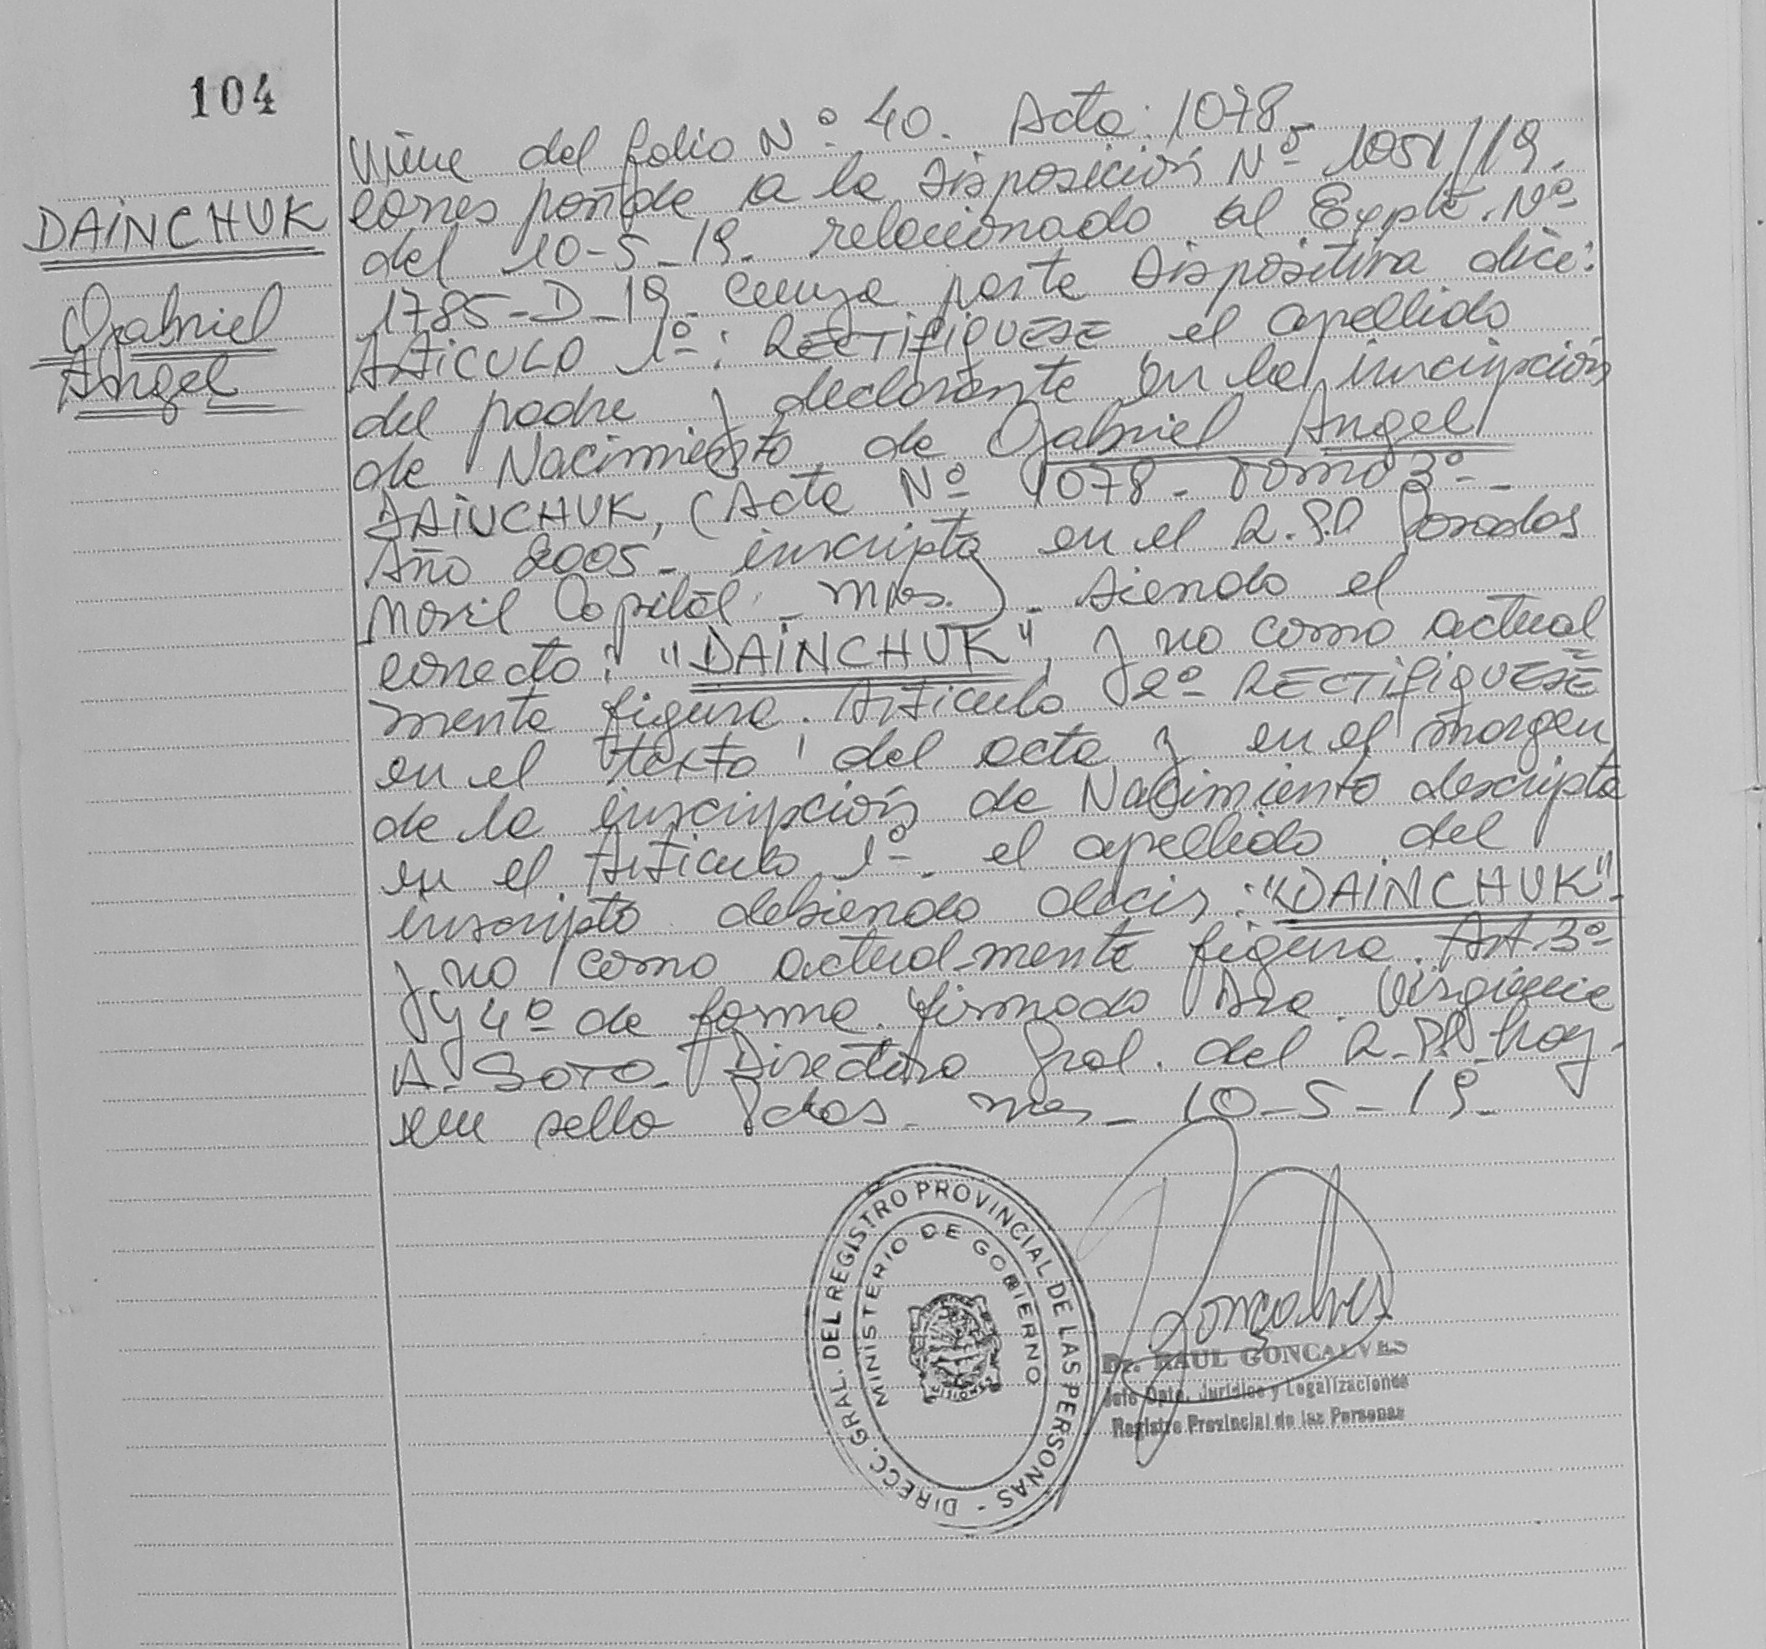 104
DAINCHUK
Gabriel
Angel
Viene del folio Nº 40. Acta: 1078-
corresponde a la Disposición Nº 1051/19.
del 10-5-19. relacionado al Expte. Nº
1785-D-19. cuya parte Dispositiva dice:
ARTICULO 1º: RECTIFIQUESE el apellido
del padre y declarante en la inscripción
de Nacimiento de Gabriel Angel
DAINCHUK, (Acta Nº 1078- Tomo 3º-
Año 2005- inscripta en el R.P.P Posadas
Movil Capital - Mnes.)- siendo el
correcto: "DAINCHUK", y no como actual
mente figura. Articulo 2º RECTIFIQUESE
en el texto del acta y en el margen
de la inscripción de Nacimiento descripta
en el Articulo 1º- el apellido del
inscripto debiendo decir: "DAINCHUK"-
y no como actual-mente figura. Art. 3º
y 4º de forma. firmado Dra. Virginia
A. SOTO- Directora Gral. del R.P.P- hoy
un sello Pdas. Mnes- 10-5-19-
DIRECC. GRAL. DEL REGISTRO PROVINCIAL DE LAS PERSONAS -
MINISTERIO DE GOBIERNO
MISIONES
Gonçalves
Dr. RAUL GONCALVES
Jefe Dpto. Jurídico y Legalizaciones
Registro Provincial de las Personas